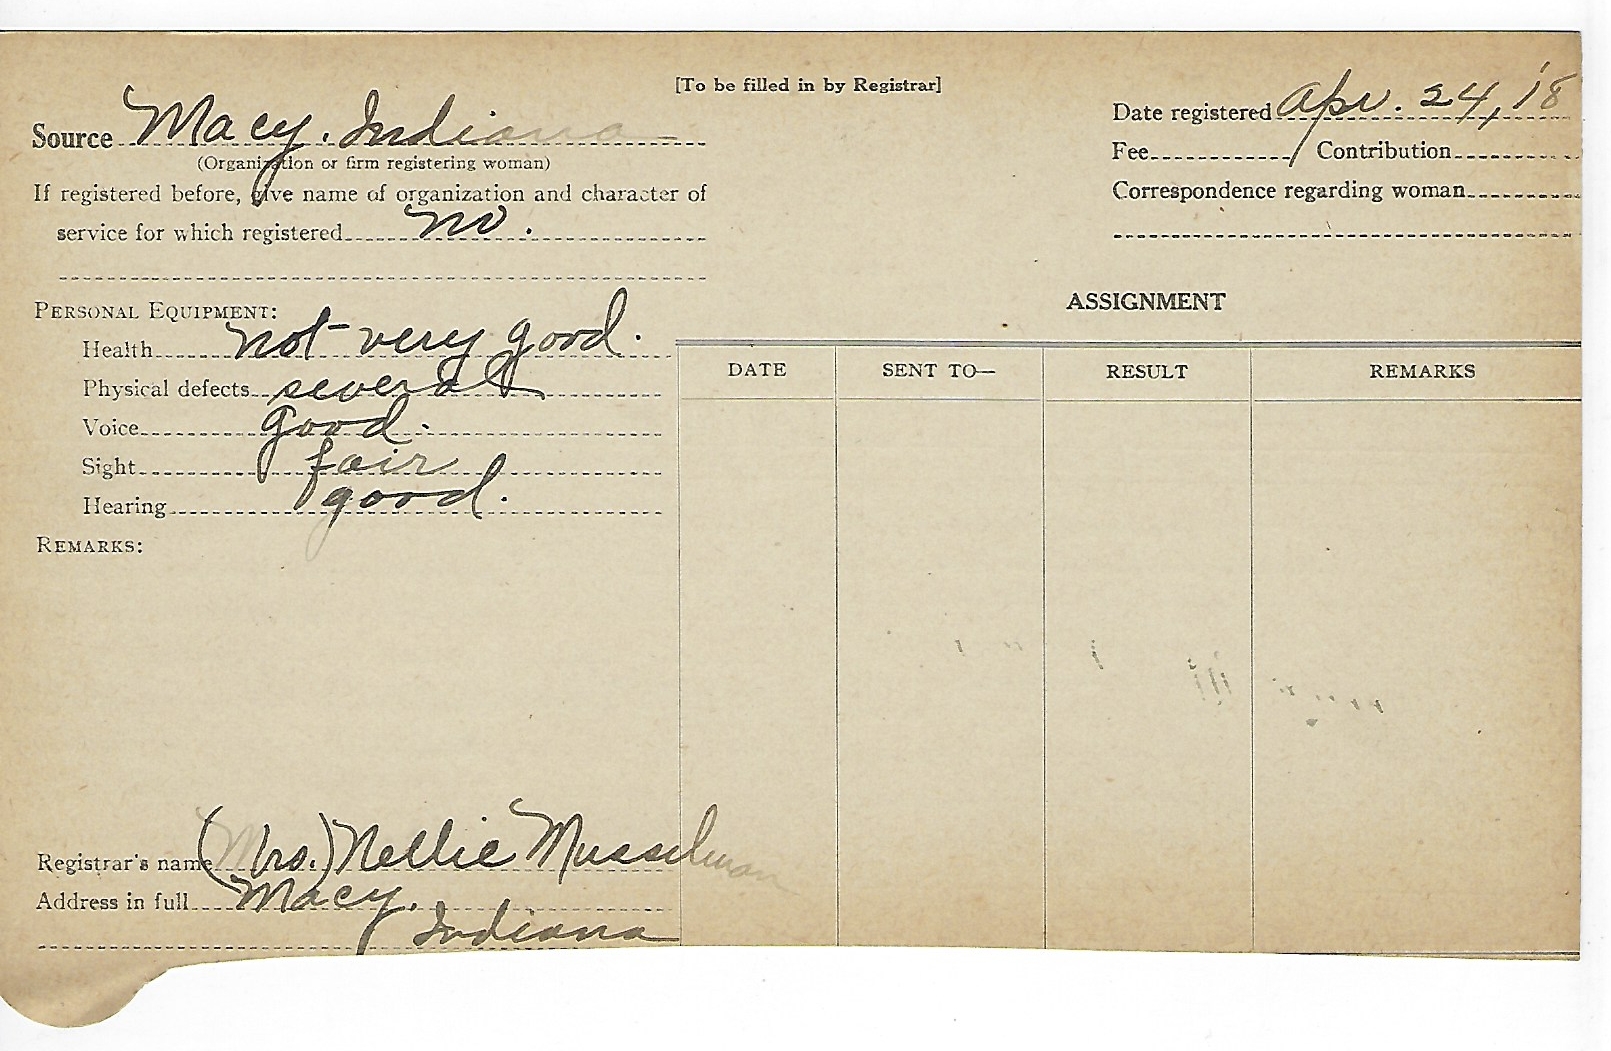 [To be filled in by Registrar]
Source Macy, Indiana
(Organization or firm registering woman)
If registered before, give name of organization and character of
service for which registered no.
PERSONAL EQUIPMENT:
Health not very good.
Physical defects several
Voice good.
Sight fair
Hearing good.
REMARKS:
Registrar's name (Mrs.) Nellie Musselman
Address in full Macy,
Indiana
Date registered Apr. 24, '18
Fee Contribution
Correspondence regarding woman
ASSIGNMENT
DATE SENT TO— RESULT REMARKS